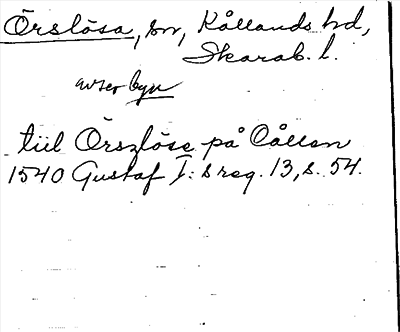 Örslösa, sn, Kållands hd,
Skarab. l.
avser byn
till Örszlöse på Kållen
1540 Gustaf I: s reg. 13, s. 54.